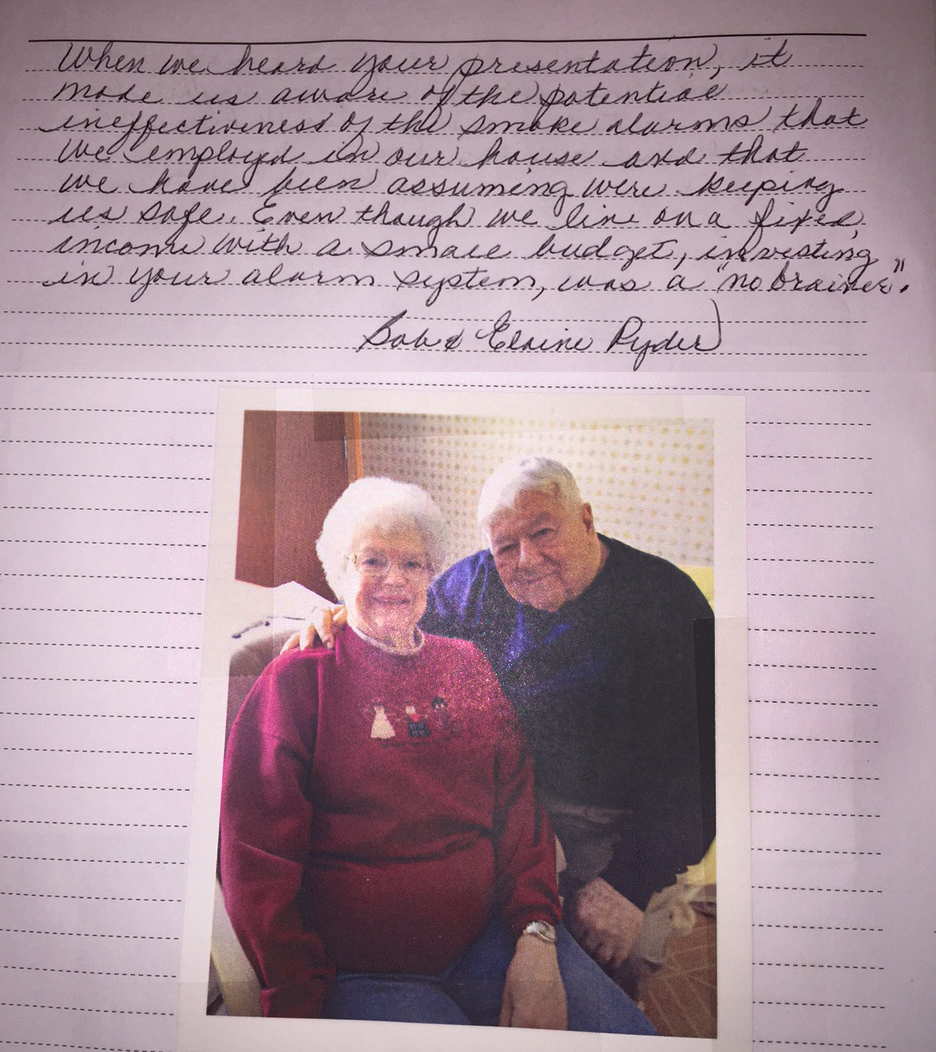 When we heard your presentation, it
made us aware of the potential
ineffectiveness of the smoke alarms that
we employd in our house and that
we have been assuming were keeping
us safe. Even though we live on a fixed
income with a small budget, investing
in your alarm system, was a "no brainer".
Bob & Elaine Ryder